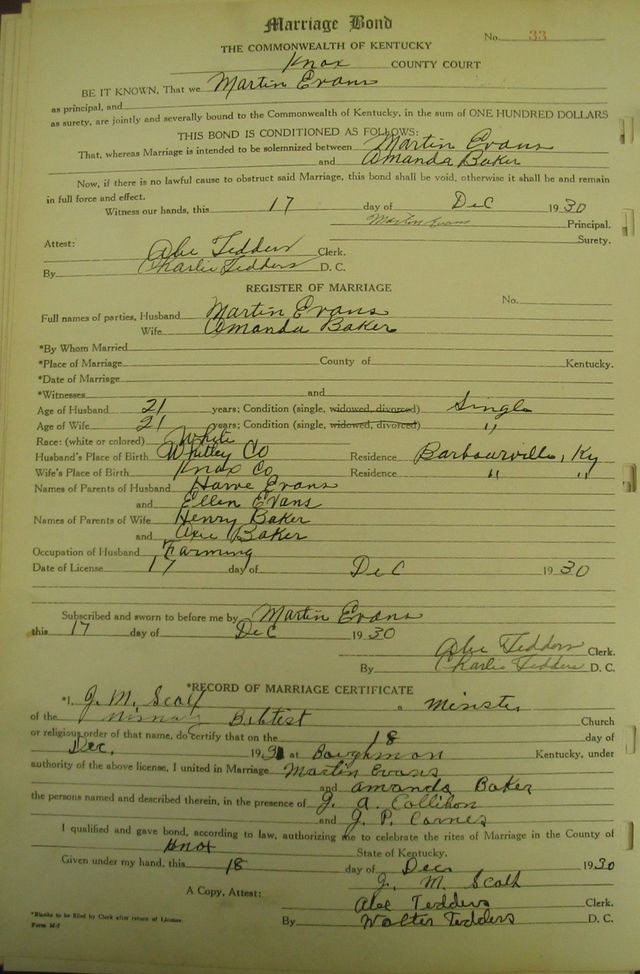 Marriage Bond
No. 33
THE COMMONWEALTH OF KENTUCKY
Knox COUNTY COURT
BE IT KNOWN, That we Martin Evans
as principal, and
as surety, are jointly and severally bound to the Commonwealth of Kentucky, in the sum of ONE HUNDRED DOLLARS
THIS BOND IS CONDITIONED AS FOLLOWS:
That, whereas Marriage is intended to be solemnized between Martin Evans
and Amanda Baker
Now, if there is no lawful cause to obstruct said Marriage, this bond shall be void, otherwise it shall be and remain
in full force and effect.
Witness our hands, this 17 day of Dec 1930
Martin Evans Principal.
Surety.
Attest: Abe Tedders Clerk.
By Charlie Tedders D. C.
REGISTER OF MARRIAGE
No.
Full names of parties, Husband Martin Evans
Wife Amanda Baker
*By Whom Married
*Place of Marriage County of Kentucky.
*Date of Marriage
*Witnesses and
Age of Husband 21 years; Condition (single, widowed, divorced) Single
Age of Wife 21 years; Condition (single, widowed, divorced) "
Race: (white or colored) White
Husband's Place of Birth Whitley Co Residence Barbourville, Ky
Wife's Place of Birth Knox Co Residence " "
Names of Parents of Husband Harve Evans
and Ellen Evans
Names of Parents of Wife Henry Baker
and Baker
Occupation of Husband Farming
Date of License 17 day of Dec 1930
Subscribed and sworn to before me by Martin Evans
this 17 day of Dec 1930
Abe Tedders Clerk.
By Charlie Tedders D. C.
*RECORD OF MARRIAGE CERTIFICATE
*I, J. M. Scalf a Minister
of the Babtist Church
or religious order of that name, do certify that on the 18 day of
Dec. 193 at Baughman Kentucky, under
authority of the above license, I united in Marriage Martin Evans
and Amanda Baker
the persons named and described therein, in the presence of J. A.
and J. P. Carnes
I qualified and gave bond, according to law, authorizing me to celebrate the rites of Marriage in the County of
Knox State of Kentucky.
Given under my hand, this 18 day of Dec 1930
J. M. Scalf
A Copy, Attest: Abe Tedders Clerk.
By Walter Tedders D. C.
*Blanks to be filled by Clerk after return of License.